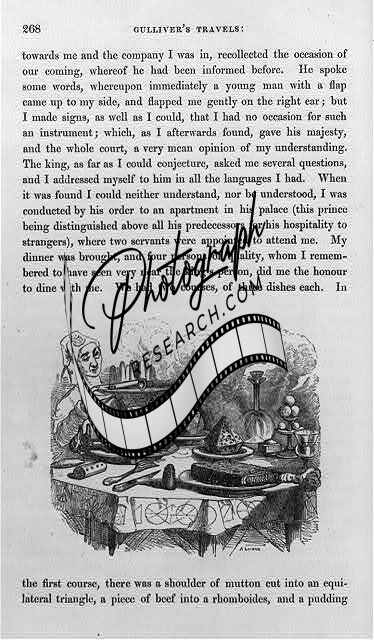 268 GULLIVER'S TRAVELS:
towards me and the company I was in, recollected the occasion of
our coming, whereof he had been informed before. He spoke
some words, whereupon immediately a young man with a flap
came up to my side, and flapped me gently on the right ear; but
I made signs, as well as I could, that I had no occasion for such
an instrument; which, as I afterwards found, gave his majesty,
and the whole court, a very mean opinion of my understanding.
The king, as far as I could conjecture, asked me several questions,
and I addressed myself to him in all the languages I had. When
it was found I could neither understand, nor be understood, I was
conducted by his order to an apartment in his palace (this prince
being distinguished above all his predecessors for his hospitality to
strangers), where two servants were appointed to attend me. My
dinner was brought, and four persons of quality, whom I remem-
bered to have seen very near the king's person, did me the honour
to dine with me. We had two courses, of three dishes each. In
Photograph
RESEARCH.COM
the first course, there was a shoulder of mutton cut into an equi-
lateral triangle, a piece of beef into a rhomboides, and a pudding